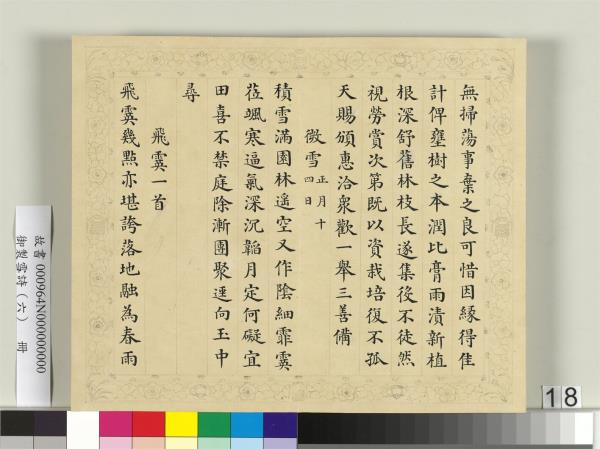 無掃蕩事棄之良可惜因緣得佳
計俾壅樹之本潤比膏雨漬新植
根深舒舊林枝長遂集後不徒然
視勞賞次第既以資栽培復不孤
天賜頒惠洽衆歡一舉三善備
微雪 正月十四日
積雪滿園林遙空又作陰細霏霙
莅颯寒逼氣深沉韜月定何礙宜
田喜不禁庭除漸團聚逕向玉中
尋
飛霙一首
飛霙幾點亦堪誇落地融為春雨
故書 000964N000000000
御製雪詩(六) 冊
18